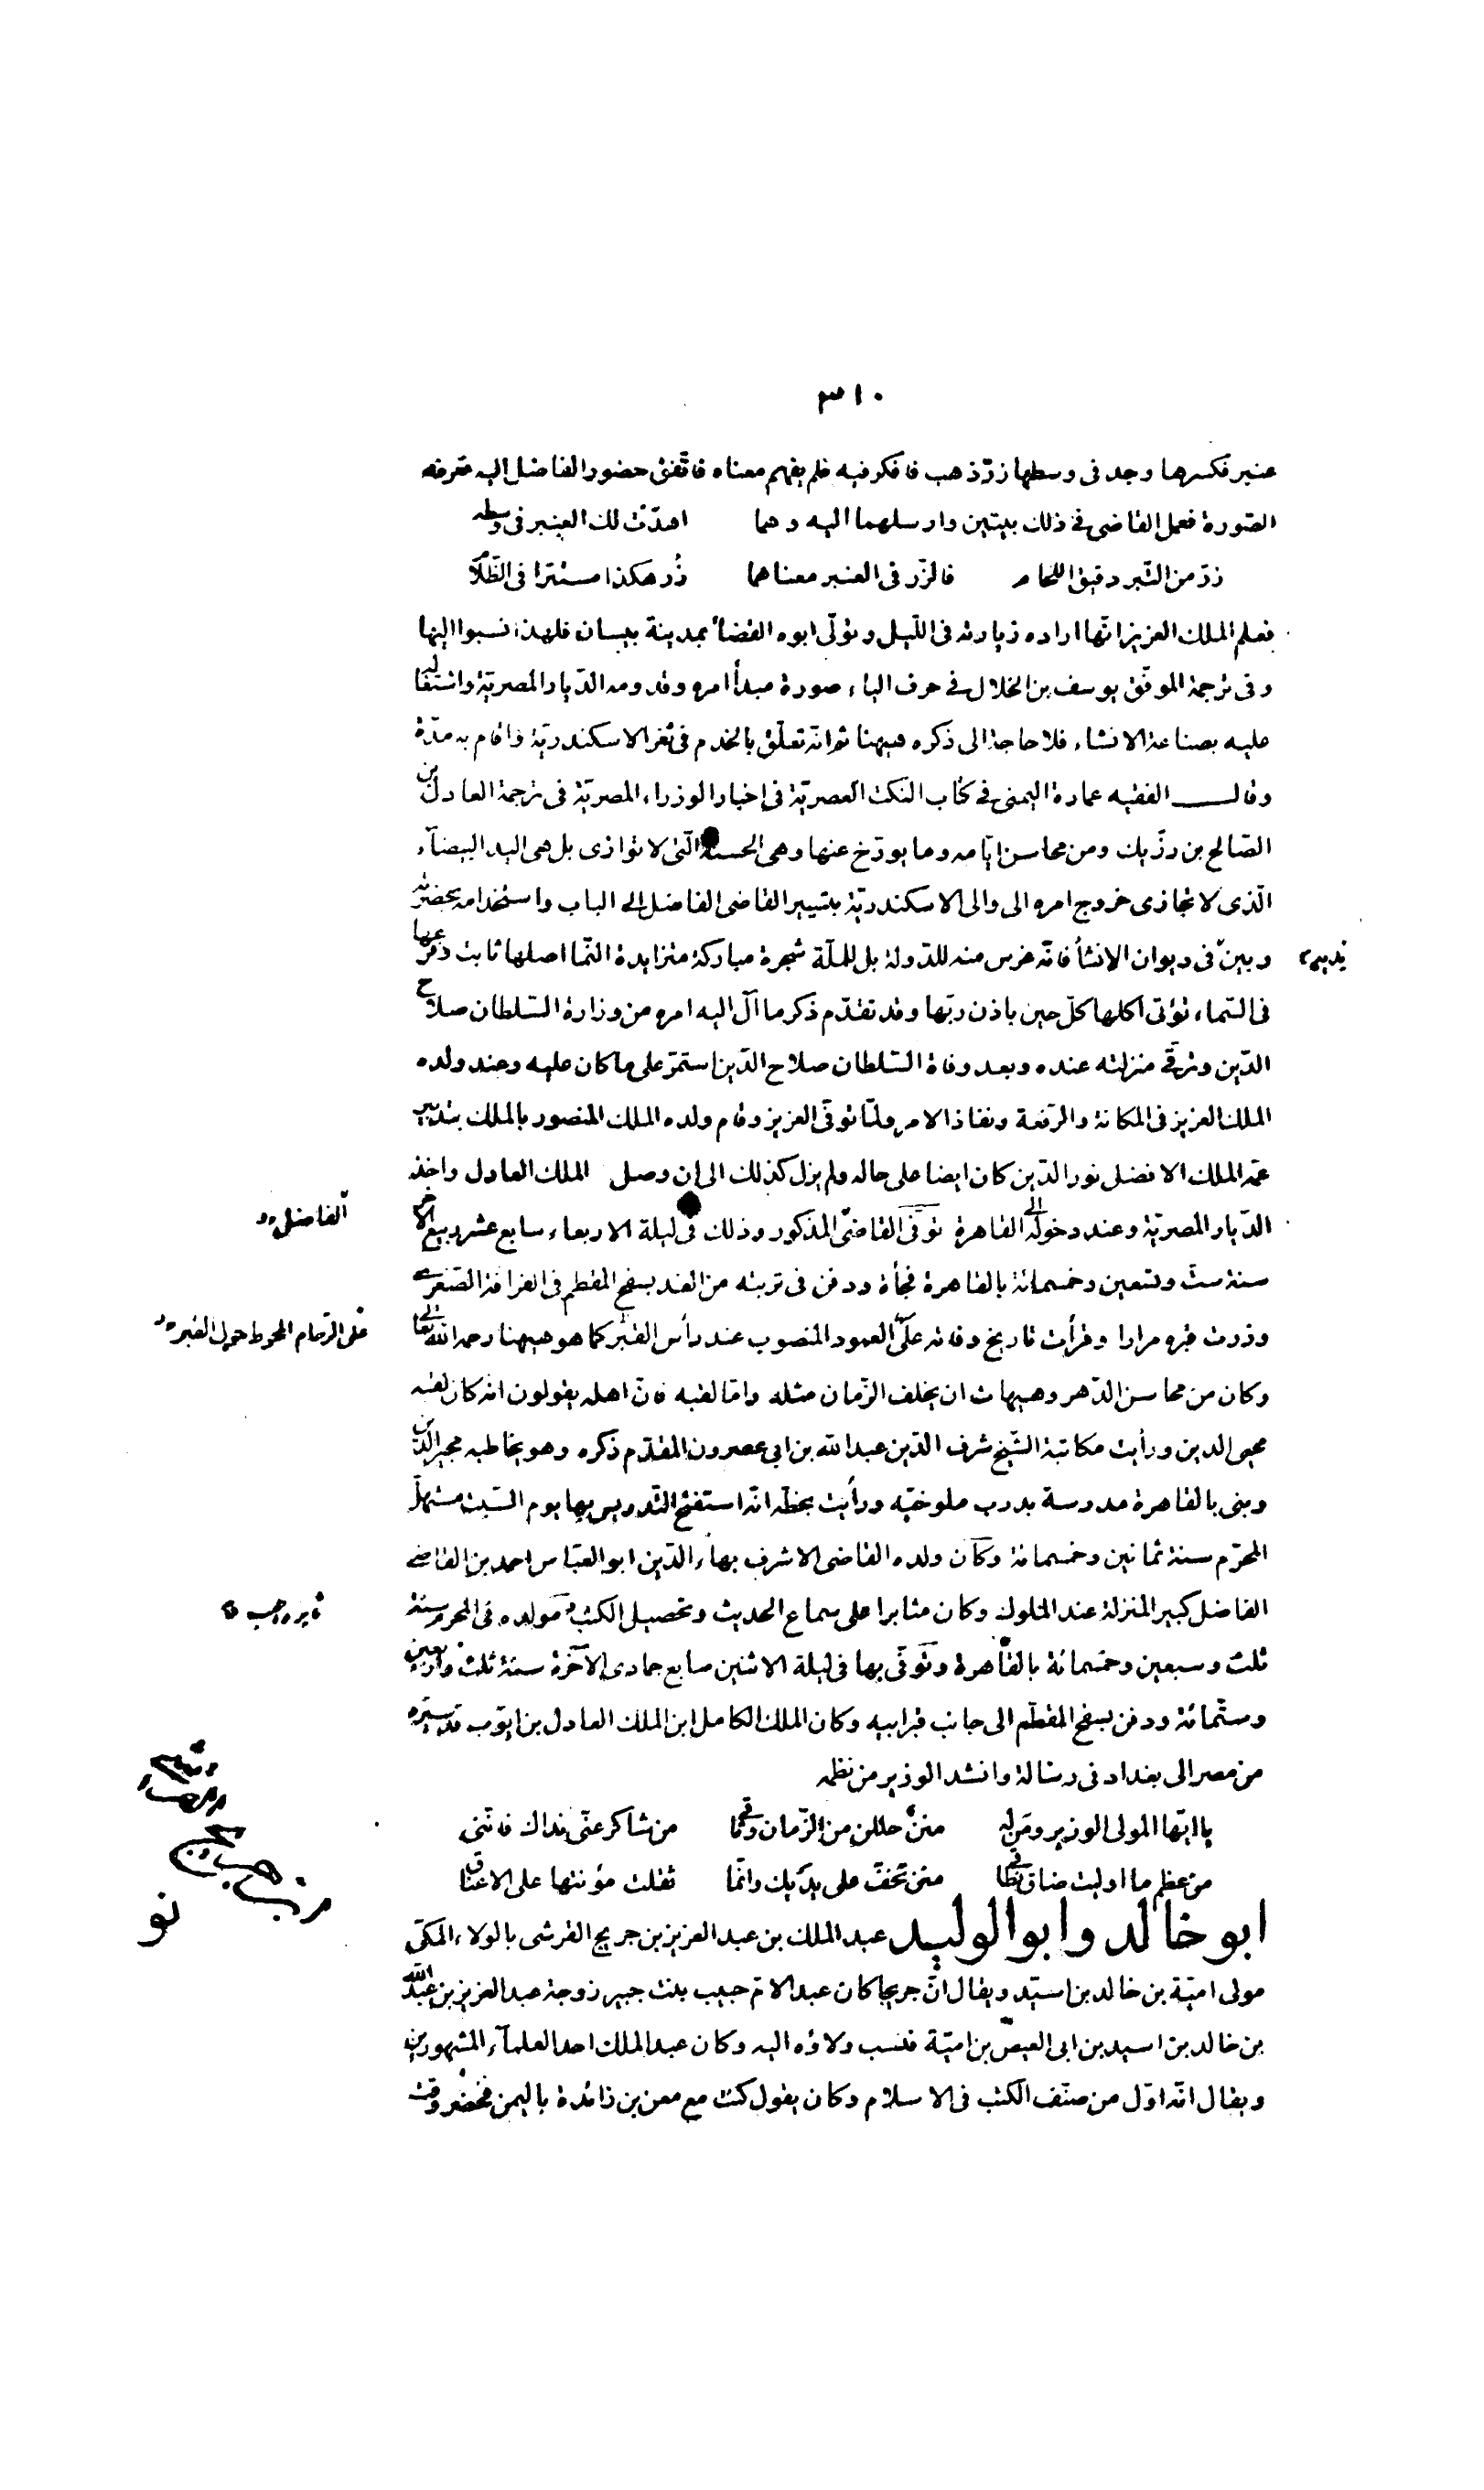 ٣١٠
عنبر فكسرها وجد فى وسطها زرّ ذهب فافكر فيه فلم يفهم معناه فاتّفق حضور الفاضل اليه فعرفه
الصّورة فعمل القاضى فى ذلك بيتين وارسلهما اليه وهما اهدت لك العنبر فى وسطه
زرّ من التّبر دقيق اللحام فالزّر فى العنبر معناهما زُر هكذا مستترا فى الظّلام
فعلم الملك العزيز انّها اراده زيارته فى اللّيل وتولّى ابوه القضاء بمدينة بيسان فلهذا نسبوا اليها
وفى ترجمة الموفّق يوسف بن الخلال فى حرف الياء صورة مبدأ امره وقدومه الدّيار المصريّة واشتغاله
عليه بصناعة الانشاء فلا حاجة الى ذكره هيهنا ثم انّه تعلّق بالخدم فى ثغر الاسكندريّة واقام به مدّة
وقال الفقيه عمارة اليمنى فى كتاب النكت العصريّة فى اخبار الوزراء المصريّة فى ترجمة العادل بن
الصّالح بن رزّيك ومن محاسن ايّامه وما يورّخ عنها وهى الحسنة الّتى لا توازى بل هى اليد البيضآء
الّذى لا تجازى خروج امره الى والى الاسكندريّة بتسيير القاضى الفاضل الى الباب واستخدامه بحضرته
وبين يديه فى ديوان الانشأ فانّه غرس منه للدّولة بل للملّة شجرة مباركة متزايدة النّما اصلها ثابت وفرعها
فى السّماء تؤتى اكلها كلّ حين باذن ربّها وقد تقدّم ذكر ما آل اليه امره من وزارة السّلطان صلاح
الدّين وترقّى منزلته عنده وبعد وفاة السّلطان صلاح الدّين استمرّ على ما كان عليه وعند ولده
الملك العزيز فى المكانة والرّفعة ونفاذ الامر ولمّا توفّى العزيز وقام ولده الملك المنصور بالملك بتدبير
عمّه الملك الافضل نور الدّين كان ايضا على حاله ولم يزل كذلك الى ان وصل الملك العادل واخذ
الدّيار المصريّة وعند دخوله الى القاهرة توفّى القاضى المذكور وذلك فى ليلة الاربعاء سابع عشر ربيع الآخر
الفاضل
سنة ستّ وتسعين وخمسمائة بالقاهرة فجأة ودفن فى تربته من الغد بسفح المقطم فى القرافة الصّغرى
وزرت قبره مرارا وقرأت تاريخ وفاته على العمود المنصوب عند رأس القبر كما هو هيهنا رحمه الله تعالى
على الرّخام المحوط حول القبر
وكان من محاسن الدّهر وهيهات ان يخلف الزّمان مثله وامّا لقبه فانّ اهله يقولون انه كان لقبه
محيى الدين ورأيت مكاتبة الشّيخ شرف الدّين عبدالله بن ابى عصرون المقدّم ذكره وهو يخاطبه مجير الدّين
وبنى بالقاهرة مدرسة بدرب ملوخيّه ورأيت بخطّه انّه استفتح التّدريس بها يوم السّبت مستهلّ
المحرّم سنة ثمانين وخمسمائة وكان ولده القاضى الاشرف بهاء الدّين ابو العبّاس احمد بن القاضى
الفاضل كبير المنزلة عند الملوك وكان مثابرا على سماع الحديث وتحصيل الكتب ومولده فى المحرم سنة
ثلث وسبعين وخمسمائة بالقاهرة وتوفّى بها فى ليلة الاثنين سابع جمادى الآخرة سنة ثلث واربعين
وستّمائة ودفن بسفح المقطّم الى جانب قبر ابيه وكان الملك الكامل ابن الملك العادل بن ايّوب قد سيّره
من مصر الى بغداد فى رسالة وانشد الوزير من نظمه
يا ايّها المولى الوزير ومن له منن حللن من الزّمان وثاقى من شاكر عنّى نداك فانّنى
من عظم ما اوليت ضاق نطاقى منن تخفّ على يديك وانّما ثقلت مؤنتها على الاعناق
ابو خالد وابو الوليد عبد الملك بن عبد العزيز بن جريج القرشى بالولاء المكّى
مولى اميّة بن خالد بن اسيّد ويقال انّ جريجا كان عبدا لامّ حبيب بنت جبير زوجة عبد العزيز بن عبد الله
بن خالد بن اسيد بن ابى العيص بن اميّة فنسب ولاؤه اليه وكان عبد الملك احد العلمآء المشهورين
ويقال انّه اوّل من صنّف الكتب فى الاسلام وكان يقول كنت مع معن بن زائدة باليمن فحضر وقت